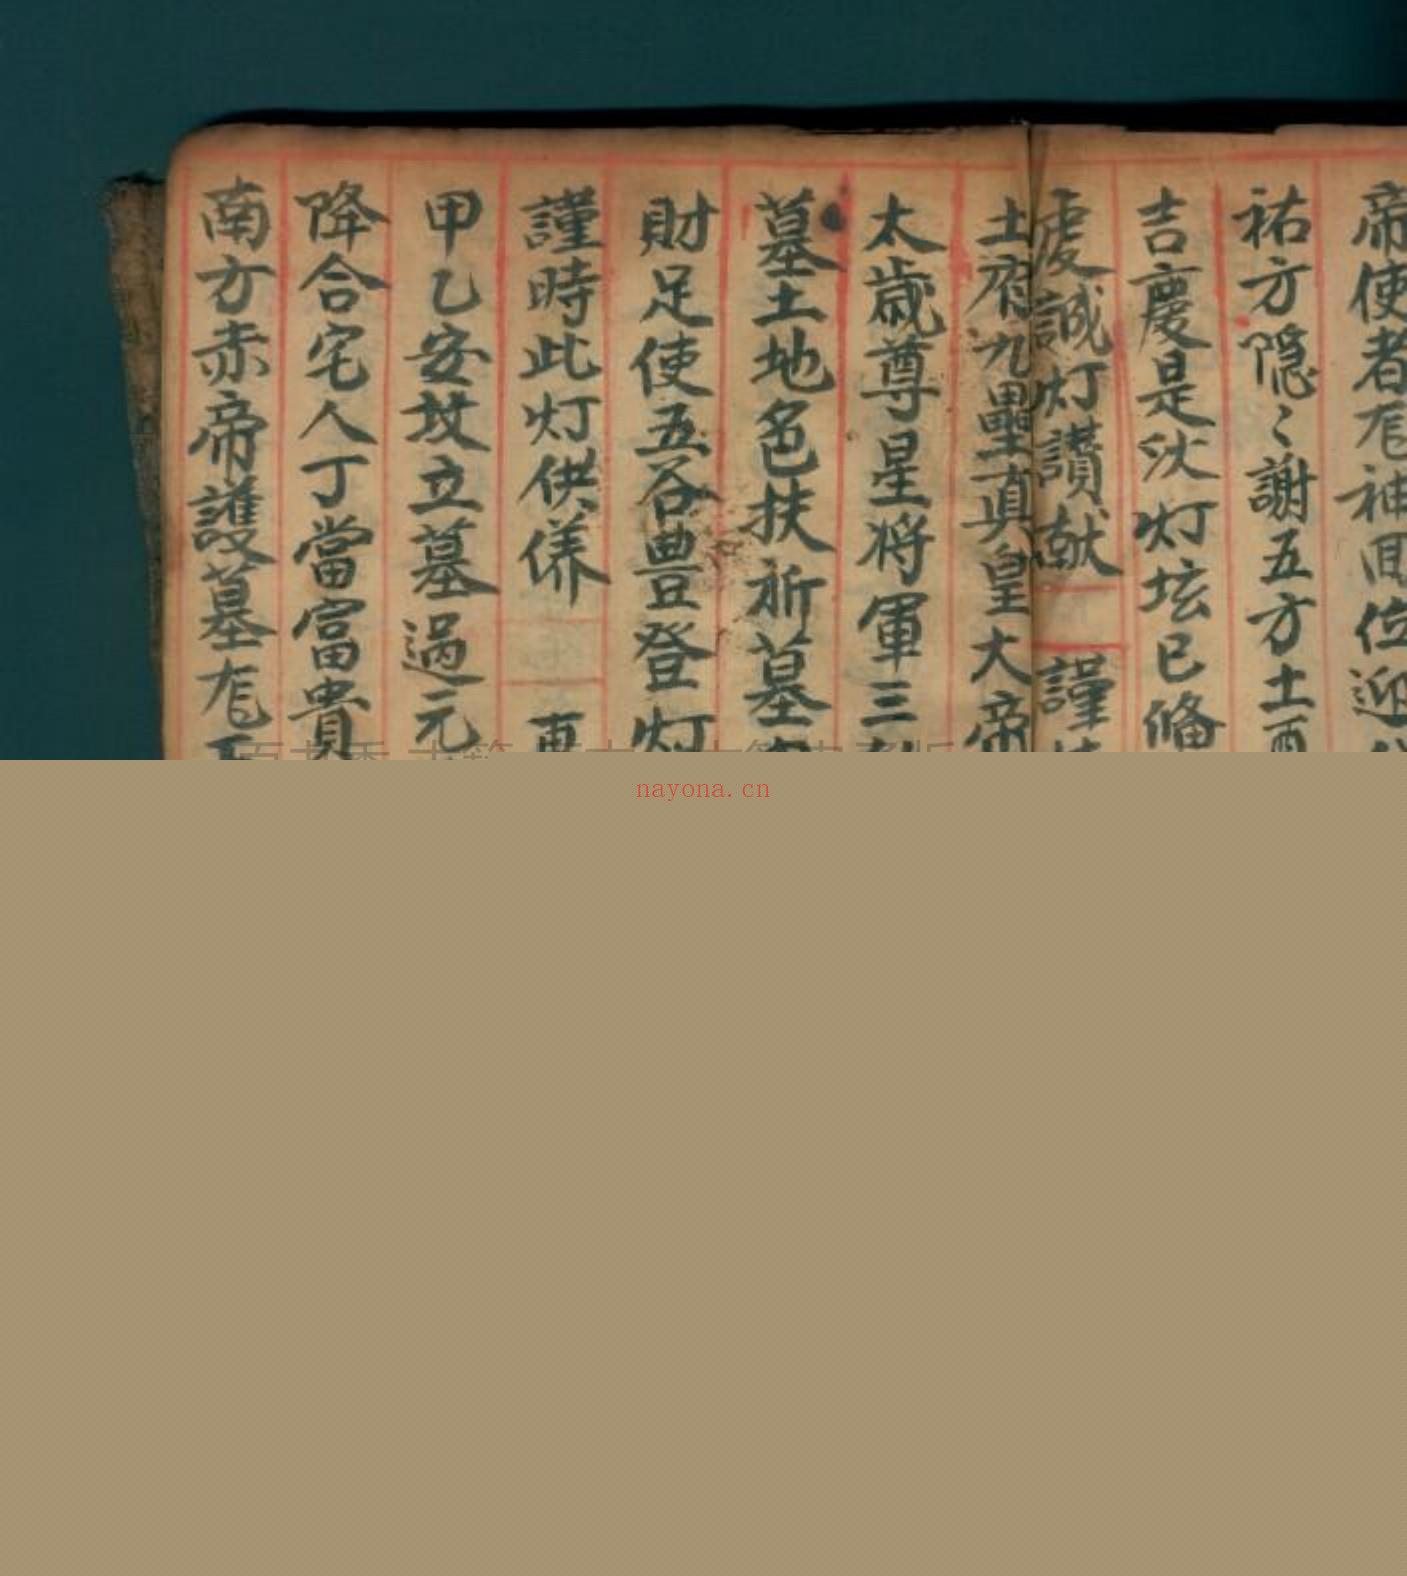 帝使者旄神回位迎
祐方隠〻謝五方土酉
吉慶是沃灯坛已俻
虔誠灯讃献 謹
土府九壘真皇大帝
太歳尊星将軍三
墓土地色扶祈墓
財足使五谷豊登灯
謹時此灯供養 再
甲乙安坟立墓過元
降合宅人丁當富貴
南方赤帝護墓旄
nayona.cn